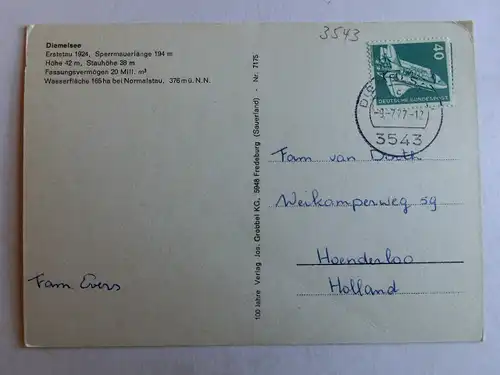 3543
Diemelsee
Erststau 1924, Sperrmauerlänge 194 m
Höhe 42 m, Stauhöhe 38 m
Fassungsvermögen 20 Mill. m³
Wasserfläche 165 ha bei Normalstau. 376 m ü. N. N.
40
DEUTSCHE BUNDESPOST
-9.-7.77.-12
3543
Fam van Dorth
Weikamperweg 59
Hoenderloo
Holland
Fam Evers
100 Jahre Verlag Jos. Grobbel KG, 5948 Fredeburg (Sauerland) - Nr. 7175